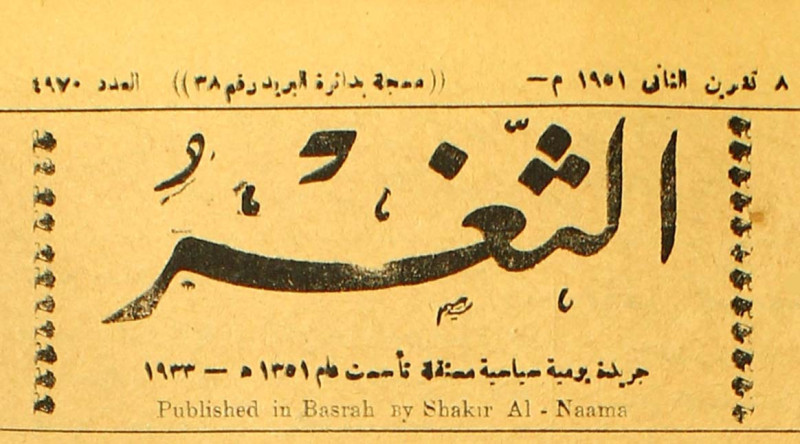 ٨ تشرين الثاني ١٩٥١ م — ((مسجلة بدائرة البريد رقم ٣٨)) العدد ٤٩٧٠
الثغر
جريدة يومية سياسية مستقلة تأسست عام ١٣٥١ ه — ١٩٣٣
Published in Basrah By Shakir Al - Naama